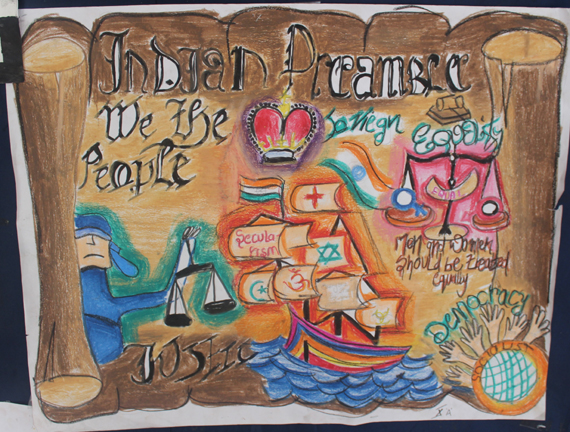 Indian Preamble
We the
People
Equality
Secula
rism
Men and Women
Should be treated
equally
Democracy
Justic